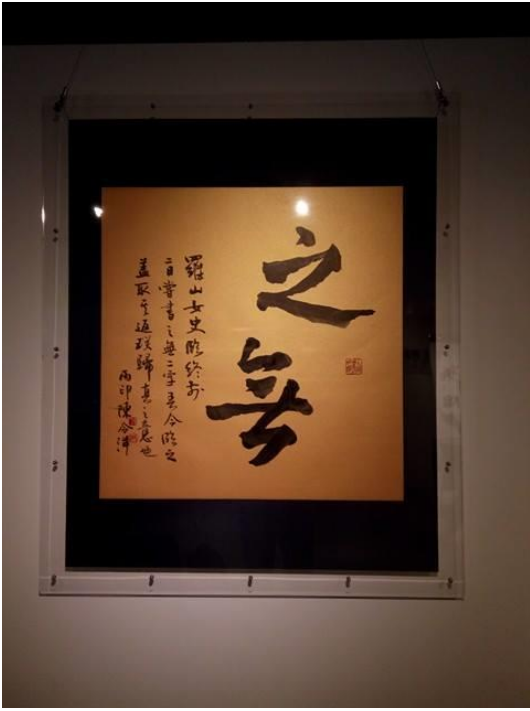 之無
羅山女史臨終前
二日嘗書之無二字吾今臨之
蓋取其返璞歸真之意也
印陳